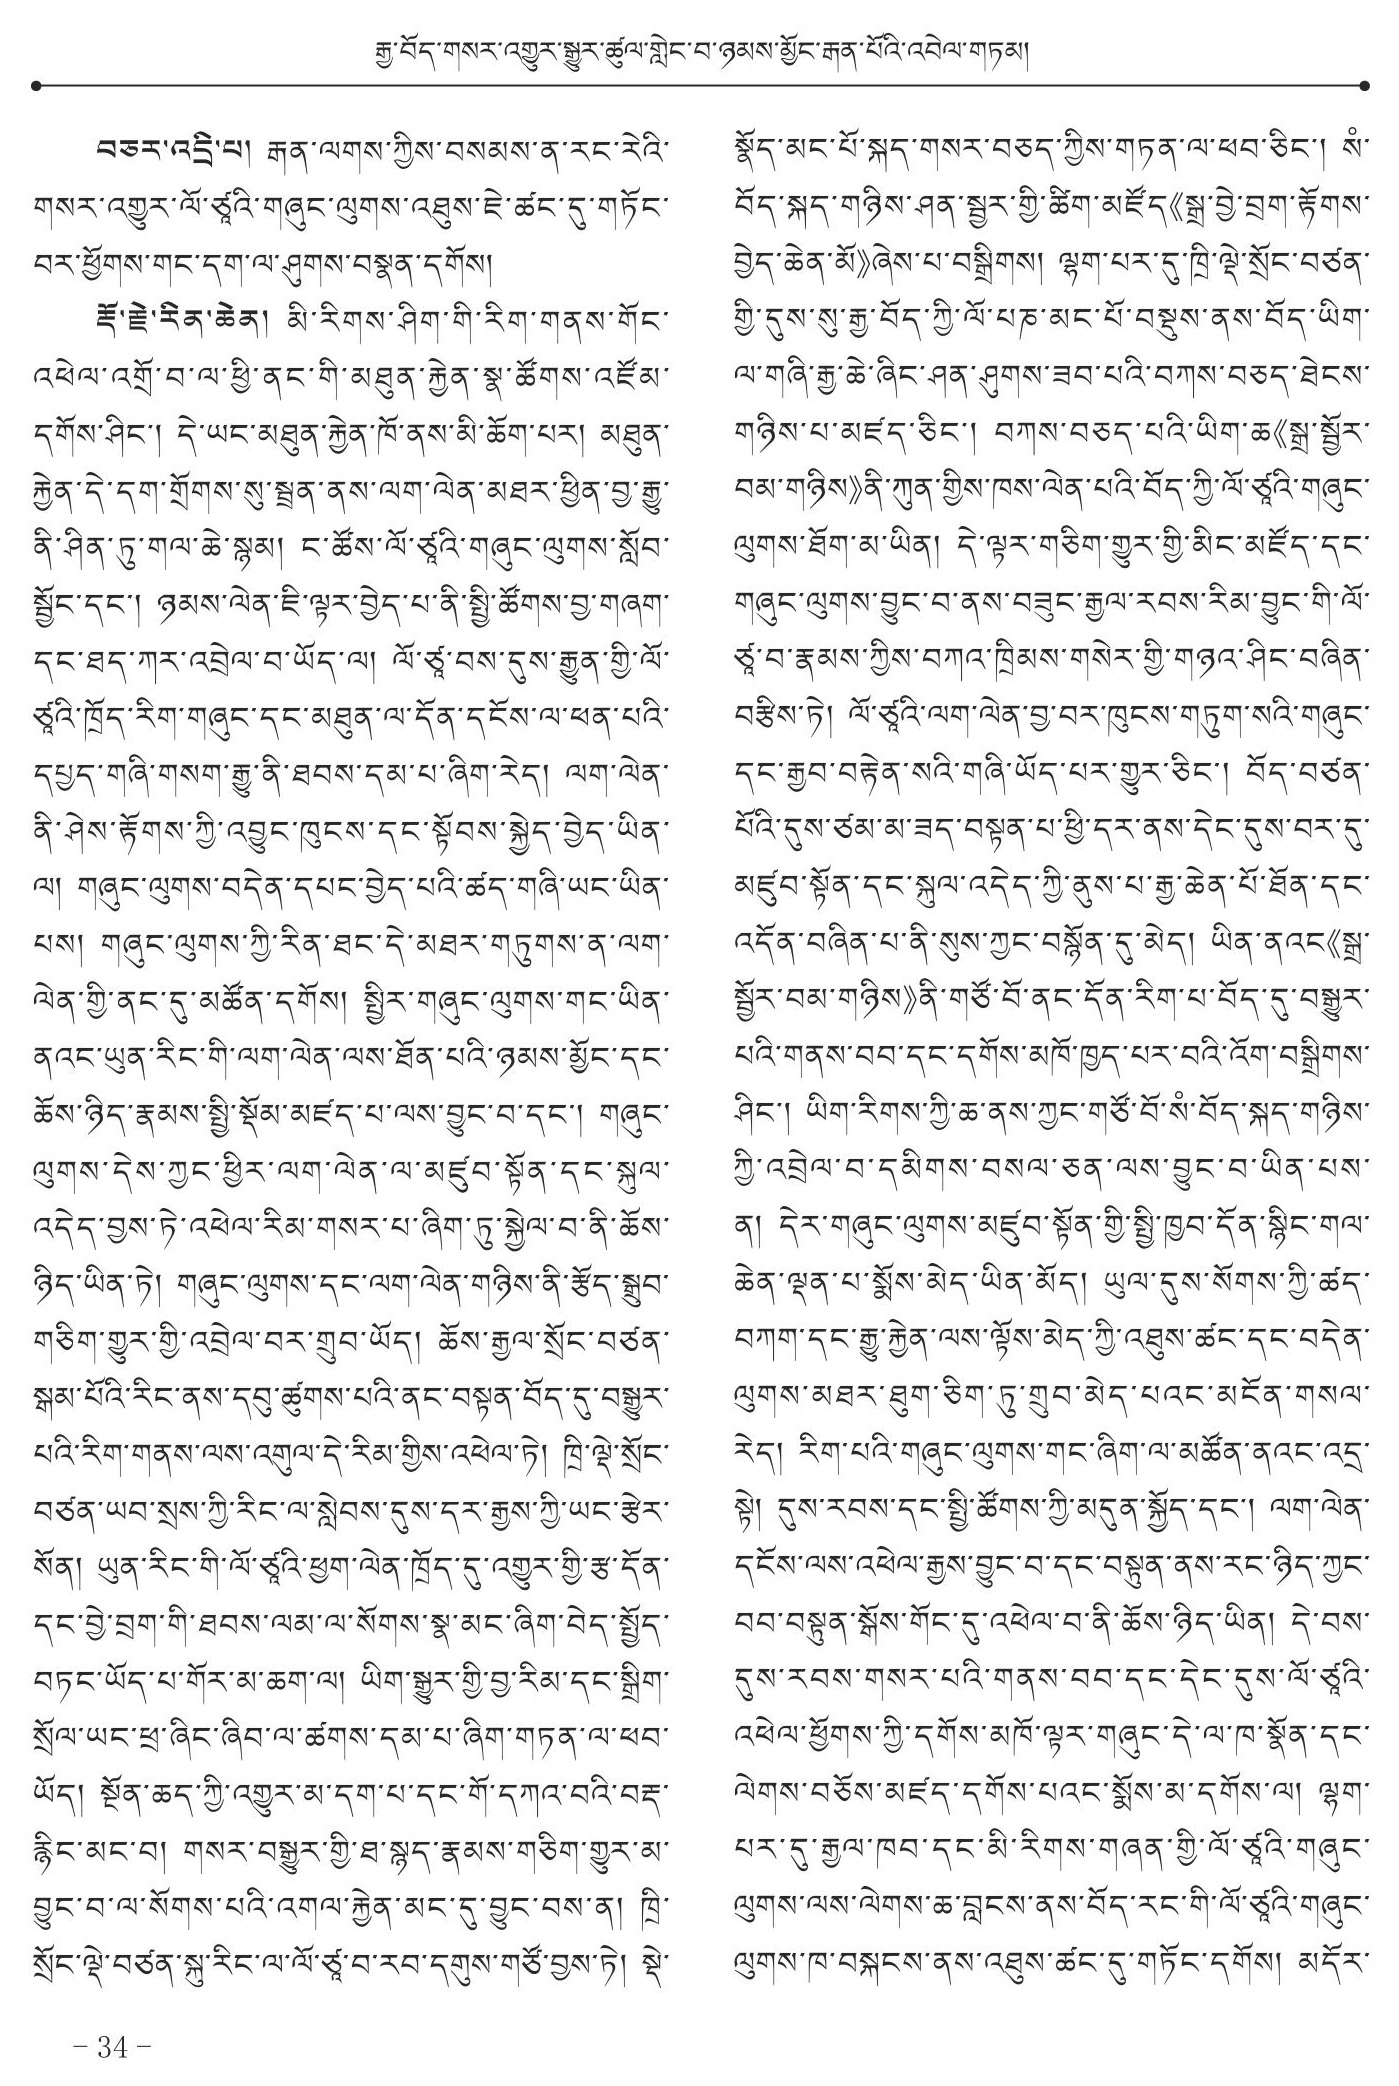 རྒྱ་བོད་གསར་འགྱུར་སྒྱུར་ཚུལ་གླེང་བ་ཉམས་མྱོང་རྒན་པོའི་འབེལ་གཏམ།
བཅར་འདྲི་པ། རྒན་ལགས་ཀྱིས་བསམས་ན་རང་རེའི་
གསར་འགྱུར་ལོ་ཙཱའི་གཞུང་ལུགས་འཐུས་ཇེ་ཚང་དུ་གཏོང་
བར་ཕྱོགས་གང་དག་ལ་ཤུགས་བསྣན་དགོས།
རྡོ་རྗེ་རིན་ཆེན། མི་རིགས་ཤིག་གི་རིག་གནས་གོང་
འཕེལ་འགྲོ་བ་ལ་ཕྱི་ནང་གི་མཐུན་རྐྱེན་སྣ་ཚོགས་འཛོམ་
དགོས་ཤིང་། དེ་ཡང་མཐུན་རྐྱེན་ཁོ་ནས་མི་ཆོག་པར། མཐུན་
རྐྱེན་དེ་དག་གྲོགས་སུ་སྦྲན་ནས་ལག་ལེན་མཐར་ཕྱིན་བྱ་རྒྱུ་
ནི་ཤིན་ཏུ་གལ་ཆེ་སྙམ། ང་ཚོས་ལོ་ཙཱའི་གཞུང་ལུགས་སློབ་
སྦྱོང་དང་། ཉམས་ལེན་ཇི་ལྟར་བྱེད་པ་ནི་སྤྱི་ཚོགས་བྱ་གཞག་
དང་ཐད་ཀར་འབྲེལ་བ་ཡོད་ལ། ལོ་ཙཱ་བས་དུས་རྒྱུན་གྱི་ལོ་
ཙཱའི་ཁྲོད་རིག་གཞུང་དང་མཐུན་ལ་དོན་དངོས་ལ་ཕན་པའི་
དཔྱད་གཞི་གསག་རྒྱུ་ནི་ཐབས་དམ་པ་ཞིག་རེད། ལག་ལེན་
ནི་ཤེས་རྟོགས་ཀྱི་འབྱུང་ཁུངས་དང་སྟོབས་སྐྱེད་བྱེད་ཡིན་
ལ། གཞུང་ལུགས་བདེན་དཔང་བྱེད་པའི་ཚད་གཞི་ཡང་ཡིན་
པས། གཞུང་ལུགས་ཀྱི་རིན་ཐང་དེ་མཐར་གཏུགས་ན་ལག་
ལེན་གྱི་ནང་དུ་མཚོན་དགོས། སྤྱིར་གཞུང་ལུགས་གང་ཡིན་
ནའང་ཡུན་རིང་གི་ལག་ལེན་ལས་ཐོན་པའི་ཉམས་མྱོང་དང་
ཆོས་ཉིད་རྣམས་སྤྱི་སྡོམ་མཛད་པ་ལས་བྱུང་བ་དང་། གཞུང་
ལུགས་དེས་ཀྱང་ཕྱིར་ལག་ལེན་ལ་མཛུབ་སྟོན་དང་སྐུལ་
འདེད་བྱས་ཏེ་འཕེལ་རིམ་གསར་པ་ཞིག་ཏུ་སྐྱེལ་བ་ནི་ཆོས་
ཉིད་ཡིན་ཏེ། གཞུང་ལུགས་དང་ལག་ལེན་གཉིས་ནི་རྩོད་སྒྲུབ་
གཅིག་གྱུར་གྱི་འབྲེལ་བར་གྲུབ་ཡོད། ཆོས་རྒྱལ་སྲོང་བཙན་
སྒམ་པོའི་རིང་ནས་དབུ་ཚུགས་པའི་ནང་བསྟན་བོད་དུ་བསྒྱུར་
པའི་རིག་གནས་ལས་འགུལ་དེ་རིམ་གྱིས་འཕེལ་ཏེ། ཁྲི་ལྡེ་སྲོང་
བཙན་ཡབ་སྲས་ཀྱི་རིང་ལ་སླེབས་དུས་དར་རྒྱས་ཀྱི་ཡང་རྩེར་
སོན། ཡུན་རིང་གི་ལོ་ཙཱའི་ཕྱག་ལེན་ཁྲོད་དུ་འགྱུར་གྱི་རྩ་དོན་
དང་བྱེ་བྲག་གི་ཐབས་ལམ་ལ་སོགས་སྣ་མང་ཞིག་བེད་སྤྱོད་
བཏང་ཡོད་པ་གོར་མ་ཆག་ལ། ཡིག་སྒྱུར་གྱི་བྱ་རིམ་དང་སྒྲིག་
སྲོལ་ཡང་ཕྲ་ཞིང་ཞིབ་ལ་ཚགས་དམ་པ་ཞིག་གཏན་ལ་ཕབ་
ཡོད། སྔོན་ཆད་ཀྱི་འགྱུར་མ་དག་པ་དང་གོ་དཀའ་བའི་བརྡ་
རྙིང་མང་བ། གསར་བསྒྱུར་གྱི་ཐ་སྙད་རྣམས་གཅིག་གྱུར་མ་
བྱུང་བ་ལ་སོགས་པའི་འགལ་རྐྱེན་མང་དུ་བྱུང་བས་ན། ཁྲི་
སྲོང་ལྡེ་བཙན་སྐུ་རིང་ལ་ལོ་ཙཱ་བ་རབ་དགུས་གཙོ་བྱས་ཏེ། སྡེ་
སྣོད་མང་པོ་སྐད་གསར་བཅད་ཀྱིས་གཏན་ལ་ཕབ་ཅིང་། སཾ་
བོད་སྐད་གཉིས་ཤན་སྦྱར་གྱི་ཚིག་མཛོད《སྒྲ་བྱེ་བྲག་རྟོགས་
བྱེད་ཆེན་མོ》ཞེས་པ་བསྒྲིགས། ལྷག་པར་དུ་ཁྲི་ལྡེ་སྲོང་བཙན་
གྱི་དུས་སུ་རྒྱ་བོད་ཀྱི་ལོ་པཎ་མང་པོ་བསྡུས་ནས་བོད་ཡིག་
ལ་གཞི་རྒྱ་ཆེ་ཞིང་ཤན་ཤུགས་ཟབ་པའི་བཀས་བཅད་ཐེངས་
གཉིས་པ་མཛད་ཅིང་། བཀས་བཅད་པའི་ཡིག་ཆ《སྒྲ་སྦྱོར་
བམ་གཉིས》ནི་ཀུན་གྱིས་ཁས་ལེན་པའི་བོད་ཀྱི་ལོ་ཙཱའི་གཞུང་
ལུགས་ཐོག་མ་ཡིན། དེ་ལྟར་གཅིག་གྱུར་གྱི་མིང་མཛོད་དང་
གཞུང་ལུགས་བྱུང་བ་ནས་བཟུང་རྒྱལ་རབས་རིམ་བྱུང་གི་ལོ་
ཙཱ་བ་རྣམས་ཀྱིས་བཀའ་ཁྲིམས་གསེར་གྱི་གཉའ་ཤིང་བཞིན་
བརྩིས་ཏེ། ལོ་ཙཱའི་ལག་ལེན་བྱ་བར་ཁུངས་གཏུག་སའི་གཞུང་
དང་རྒྱབ་བརྟེན་སའི་གཞི་ཡོད་པར་གྱུར་ཅིང་། བོད་བཙན་
པོའི་དུས་ཙམ་མ་ཟད་བསྟན་པ་ཕྱི་དར་ནས་དེང་དུས་བར་དུ་
མཛུབ་སྟོན་དང་སྐུལ་འདེད་ཀྱི་ནུས་པ་རྒྱ་ཆེན་པོ་ཐོན་དང་
འདོན་བཞིན་པ་ནི་སུས་ཀྱང་བསྙོན་དུ་མེད། ཡིན་ནའང《སྒྲ་
སྦྱོར་བམ་གཉིས》ནི་གཙོ་བོ་ནང་དོན་རིག་པ་བོད་དུ་བསྒྱུར་
པའི་གནས་བབ་དང་དགོས་མཁོ་ཁྱད་པར་བའི་འོག་བསྒྲིགས་
ཤིང་། ཡིག་རིགས་ཀྱི་ཆ་ནས་ཀྱང་གཙོ་བོ་སཾ་བོད་སྐད་གཉིས་
ཀྱི་འབྲེལ་བ་དམིགས་བསལ་ཅན་ལས་བྱུང་བ་ཡིན་པས་
ན། དེར་གཞུང་ལུགས་མཛུབ་སྟོན་གྱི་སྤྱི་ཁྱབ་དོན་སྙིང་གལ་
ཆེན་ལྡན་པ་སྨོས་མེད་ཡིན་མོད། ཡུལ་དུས་སོགས་ཀྱི་ཚད་
བཀག་དང་རྒྱུ་རྐྱེན་ལས་ལྟོས་མེད་ཀྱི་འཐུས་ཚང་དང་བདེན་
ལུགས་མཐར་ཐུག་ཅིག་ཏུ་གྲུབ་མེད་པའང་མངོན་གསལ་
རེད། རིག་པའི་གཞུང་ལུགས་གང་ཞིག་ལ་མཚོན་ནའང་འདྲ་
སྟེ། དུས་རབས་དང་སྤྱི་ཚོགས་ཀྱི་མདུན་སྐྱོད་དང་། ལག་ལེན་
དངོས་ལས་འཕེལ་རྒྱས་བྱུང་བ་དང་བསྟུན་ནས་རང་ཉིད་ཀྱང་
བབ་བསྟུན་སྒོས་གོང་དུ་འཕེལ་བ་ནི་ཆོས་ཉིད་ཡིན། དེ་བས་
དུས་རབས་གསར་པའི་གནས་བབ་དང་དེང་དུས་ལོ་ཙཱའི་
འཕེལ་ཕྱོགས་ཀྱི་དགོས་མཁོ་ལྟར་གཞུང་དེ་ལ་ཁ་སྣོན་དང་
ལེགས་བཅོས་མཛད་དགོས་པའང་སྨོས་མ་དགོས་ལ། ལྷག་
པར་དུ་རྒྱལ་ཁབ་དང་མི་རིགས་གཞན་གྱི་ལོ་ཙཱའི་གཞུང་
ལུགས་ལས་ལེགས་ཆ་བླངས་ནས་བོད་རང་གི་ལོ་ཙཱའི་གཞུང་
ལུགས་ཁ་བསྐངས་ནས་འཐུས་ཚང་དུ་གཏོང་དགོས། མདོར་
– 34 –